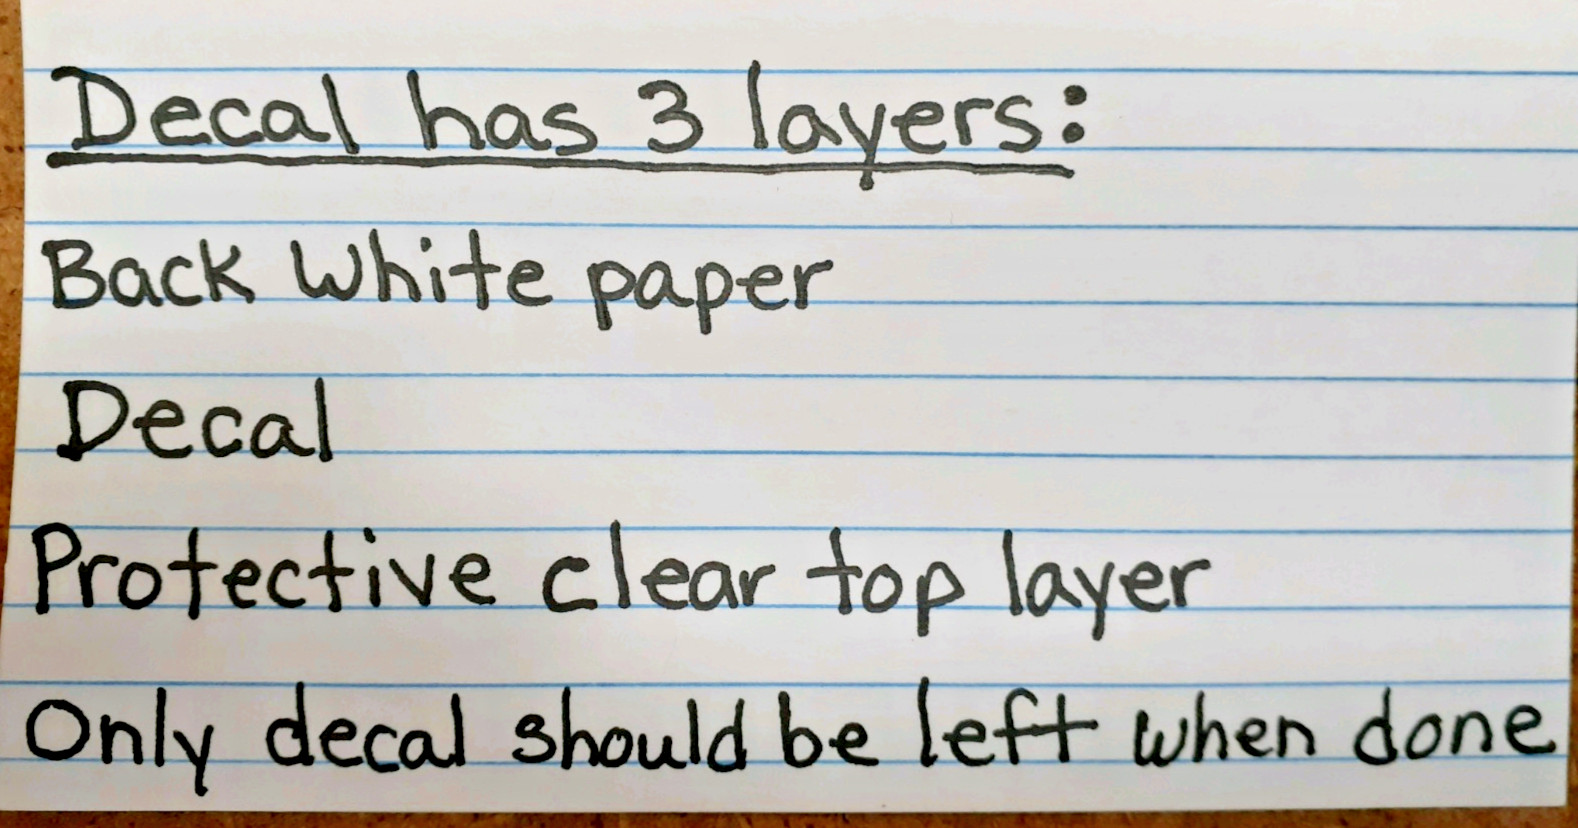 Decal has 3 layers:
Back White paper
Decal
Protective clear top layer
Only decal should be left when done